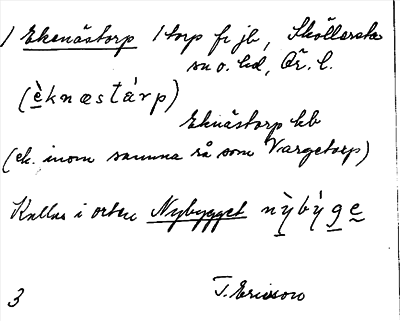 1 Ekenästorp 1 torp fr jb, Sköllersta
sn o. hd, Ör. l.
(èknæstárp)
Eknästorp kb
(ek. inom samma rå som Vargetorp)
Kallas i orten Nybygget nỳbýge
3 T. Ericsson